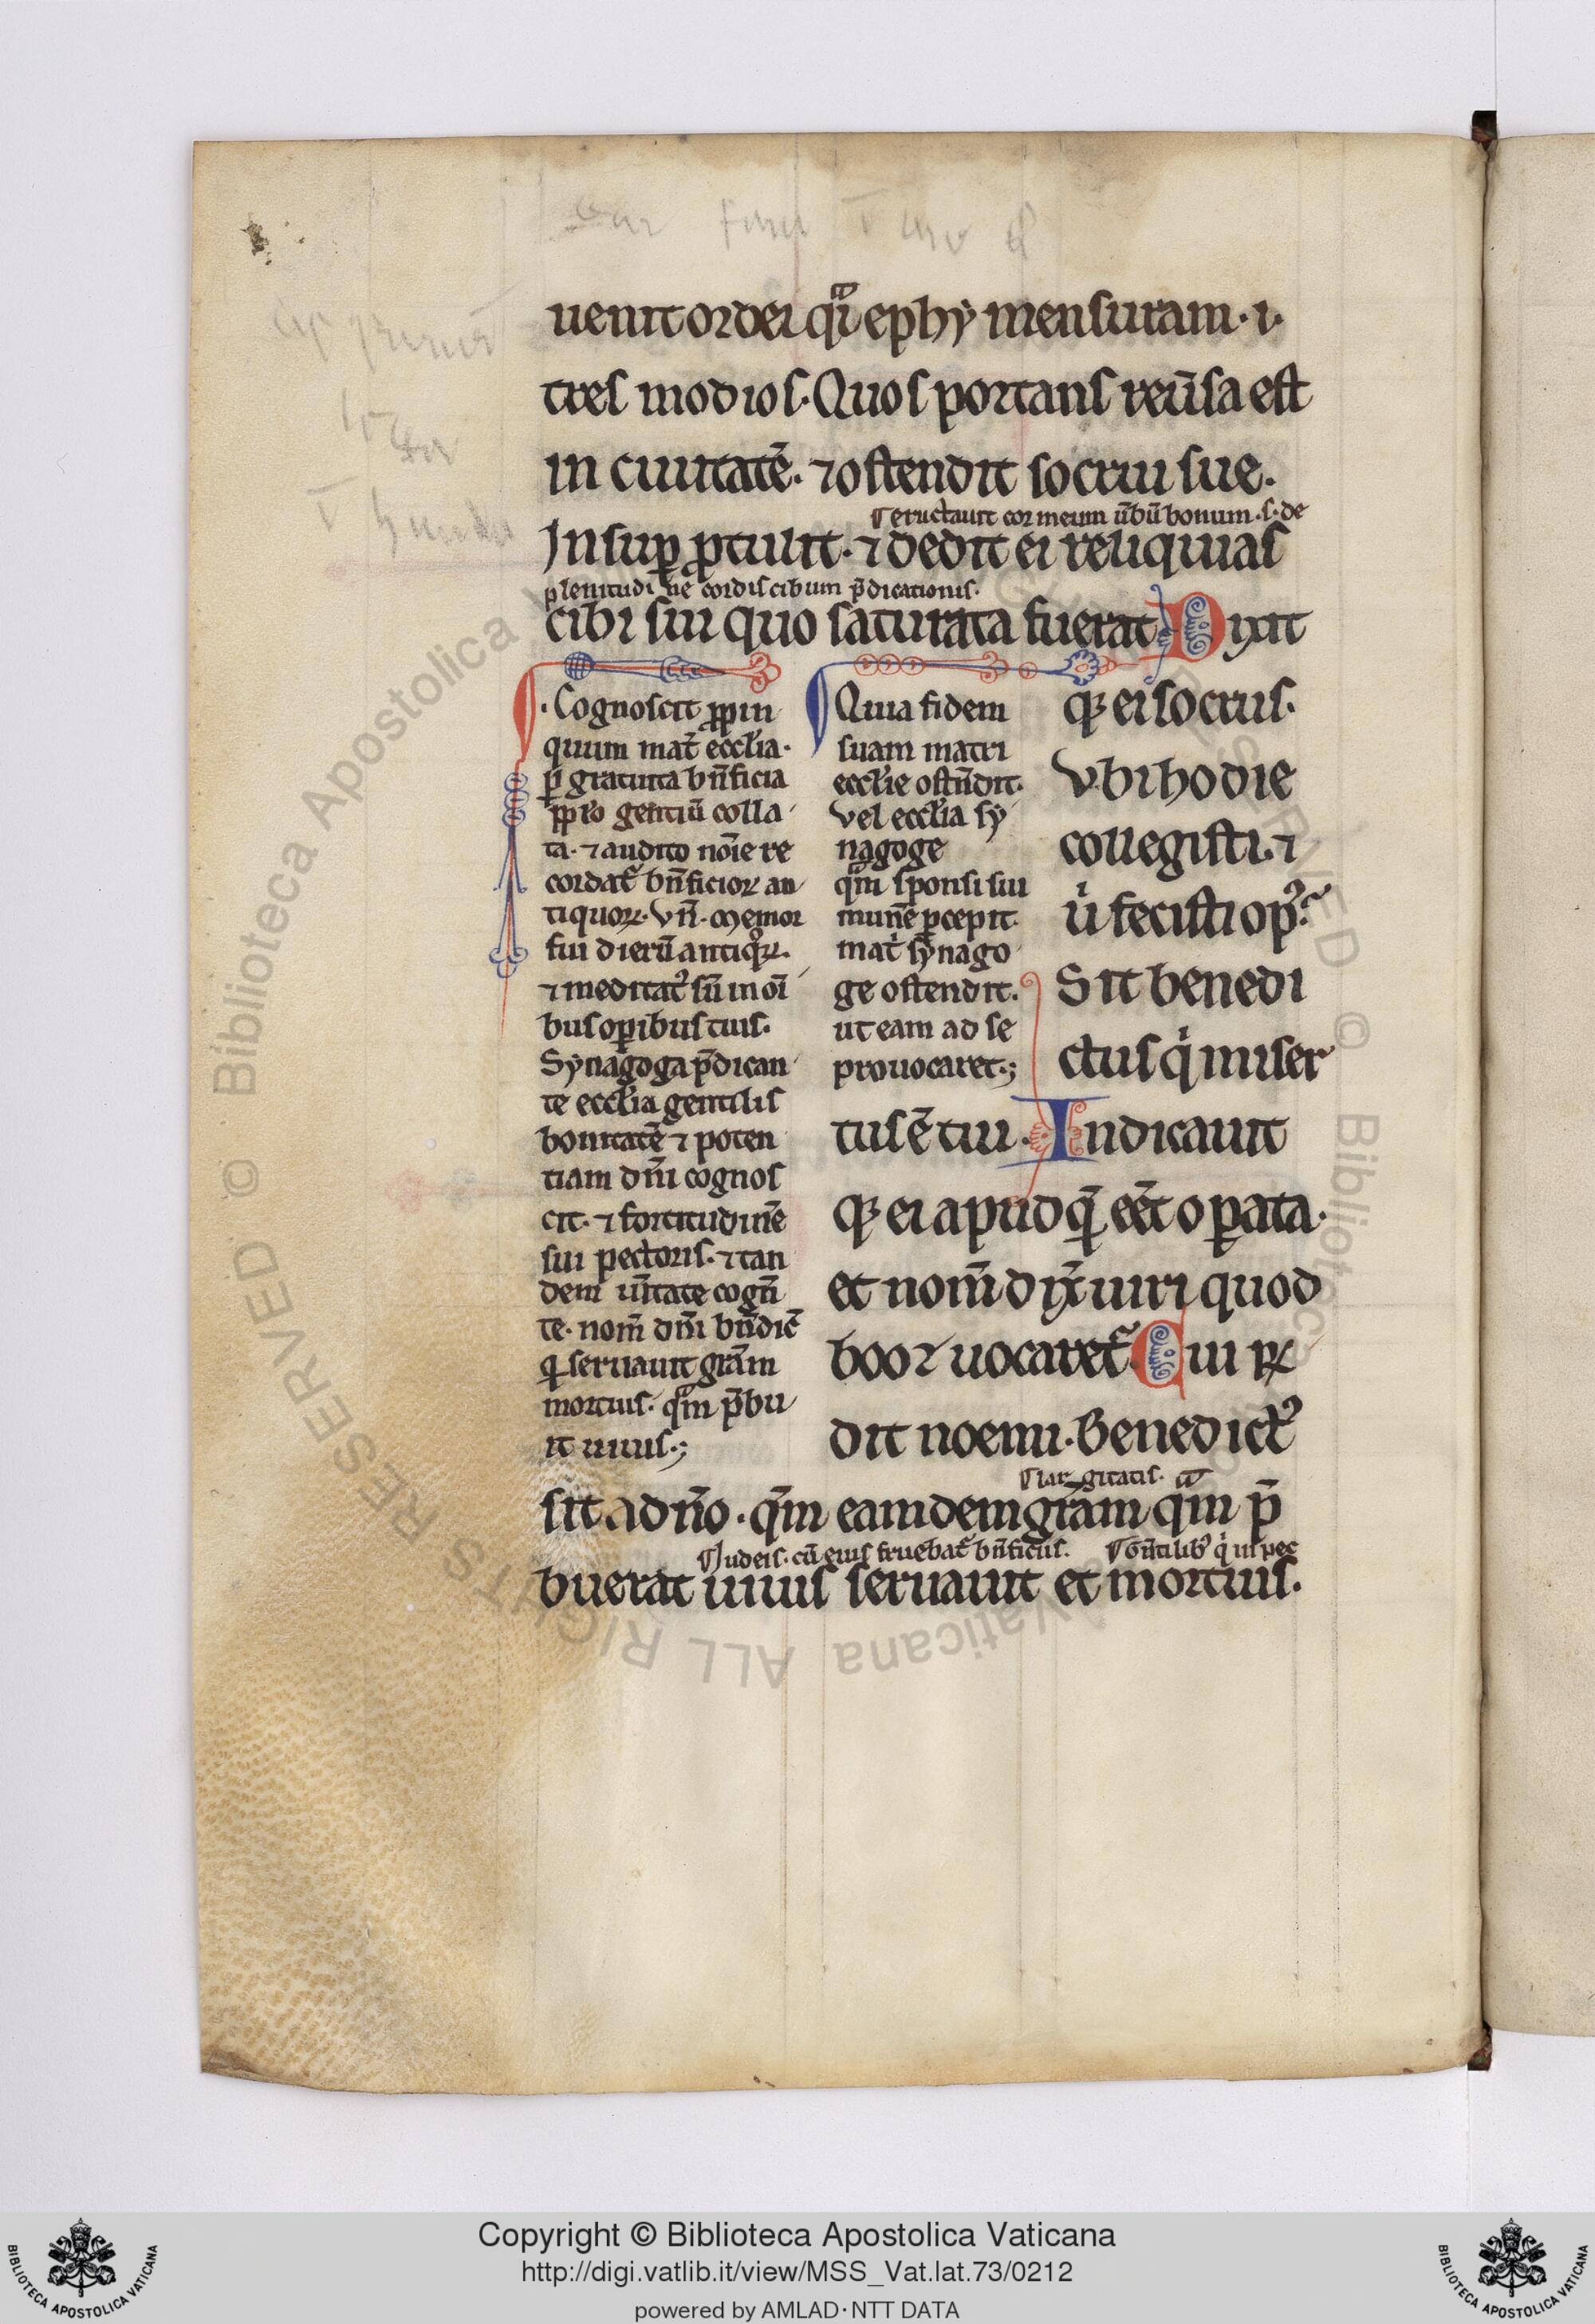 uenit ordei qͣi ephy mensuram· i·
tres modios· Quos portans reũsa est
in ciuitatẽ· ⁊ ostendit socrui sue·
eructauit cor meum ũbũ bonum· s· de
Insuꝑ ꝓtulit· ⁊ dedit ei reliquias
plenitudi ne cordis cibum p̃dicationis·
cibi sui quo saturata fuerat Dixit
· Cognoscit ꝓpin
quum mat̃ ecclia·
ꝑ gratuita bñficia
ta· ⁊ audito noĩe re
cordat᷑ bñficioꝝ an
tiquoꝝ· Vñ· Memor
fui dierũ antiqͦꝝ·
⁊ meditatꝰ sũ in oĩ
bus oꝑibus tuis·
Synagoga p̃dican
te ecclia gentilis
bonitatẽ ⁊ poten
tiam dñi cognos
cit· ⁊ fortitudinẽ
sui pectoris· ⁊ tan
dem ũitate cogñ
te· nom̃ dñi bñdic̃
q̇ seruauit grãm
mortuis· qͣm p̃bu
it uiuis·;
Quia fidem
suam matri
ecclie ostñdit·
Vel ecclia sy
nagoge
qͣm sponsi sui
munẽ ꝑcepit·
mat̃ synago
ge ostendit·
ut eam ad se
prouocaret·;
qꝫ ei socrus·
Vbi hodie
collegisti· ⁊
u̇ fecisti opꝰ·
Sit benedi
ctus q̇ miser
tus ẽ tui· Indicauit
qꝫ ei apud q̃ eẽt oꝑata·
et nom̃ dix̃ uiri quod
booz uocaret᷑· Cui rͤ
dit noemi· Benedictꝰ
largitatis·
sit a dño· qm̃ eamdem grãm qͣm p̃
Iudeis· cũ eius fruebat᷑ bñficiis· Gẽtilibꝰ q̇ in pec
buerat uiuis seruauit et mortuis·
Copyright © Biblioteca Apostolica Vaticana
http://digi.vatlib.it/view/MSS_Vat.lat.73/0212
powered by AMLAD·NTT DATA